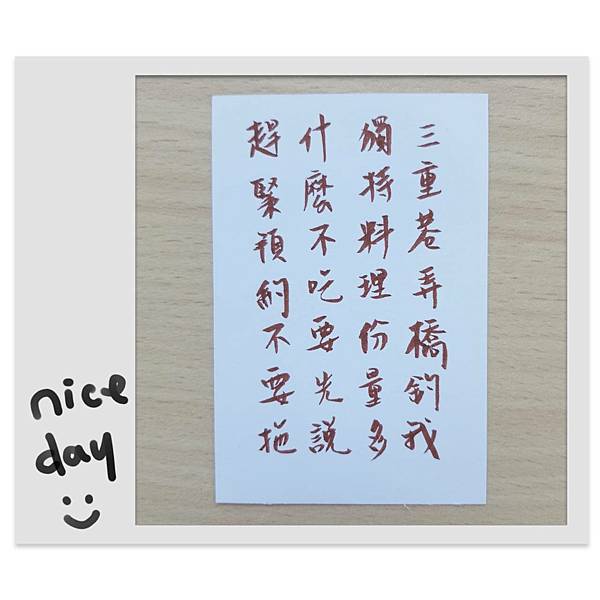 三重巷弄橋釣我
獨特料理份量多
什麼不吃要先說
趕緊預約不要拖
nice
day